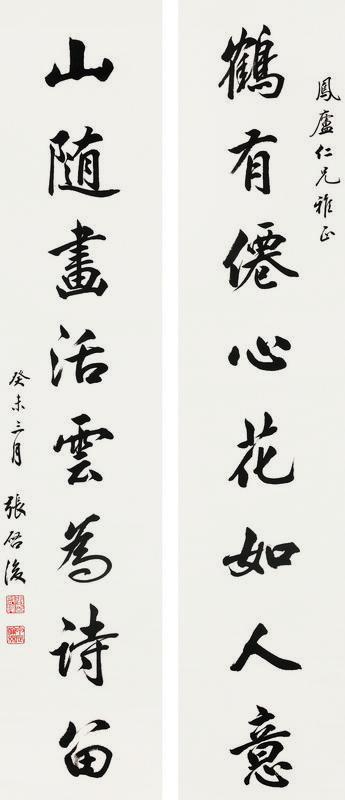 鳳廬仁兄雅正
鶴有僊心花如人意
山隨畫活雲為詩留
癸未三月
張啓後